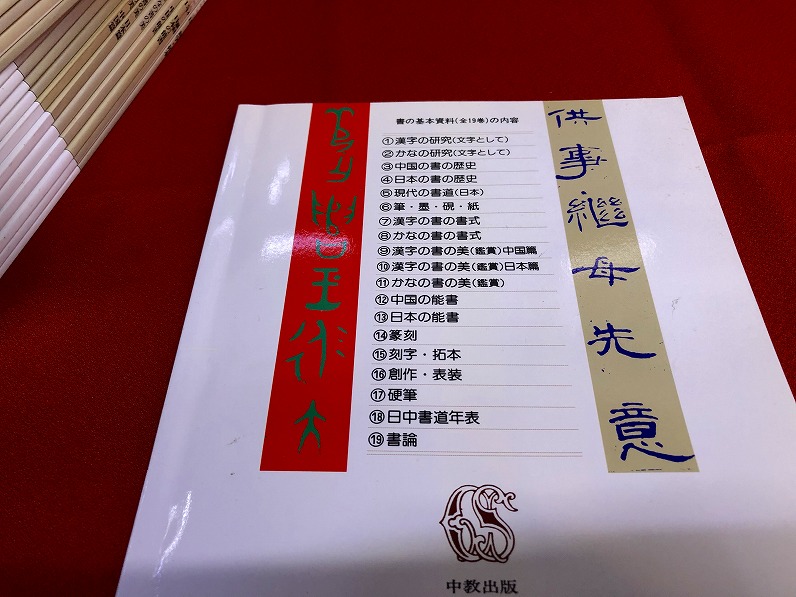 書の基本資料(全19巻)の内容
①漢字の研究(文字として)
②かなの研究(文字として)
③中国の書の歴史
④日本の書の歴史
⑤現代の書道(日本)
⑥筆・墨・硯・紙
⑦漢字の書の書式
⑧かなの書の書式
⑨漢字の書の美(鑑賞)中国篇
⑩漢字の書の美(鑑賞)日本篇
⑪かなの書の美(鑑賞)
⑫中国の能書
⑬日本の能書
⑭篆刻
⑮刻字・拓本
⑯創作・表装
⑰硬筆
⑱日中書道年表
⑲書論
供事繼母先意
中教出版